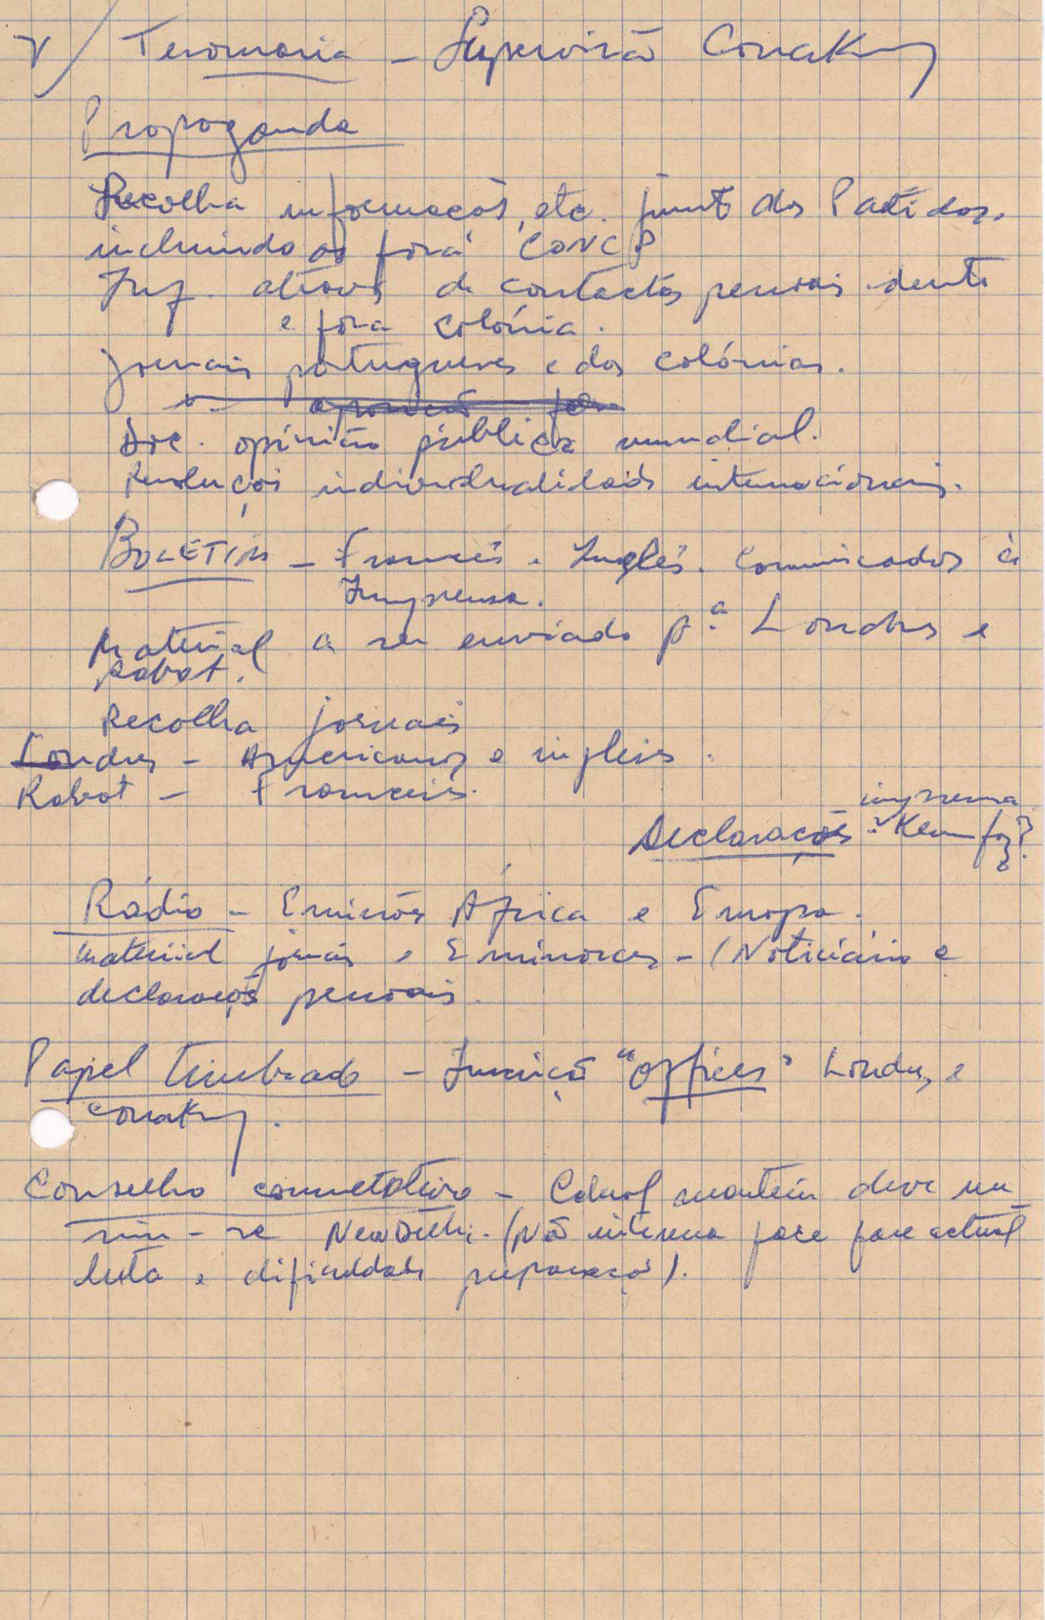 V/ Tesouraria - Supervisão Conakry
Propaganda
Recolha informações, etc. junto dos Partidos,
incluindo os fora CONCP
Inf. através de contactos pessoais dentro
e fora colónia.
Jornais portugueses e das colónias.
Doc. opinião pública mundial.
Resoluções individualidades internacionais.
BOLETIM - Francês. Inglês. Comunicados à
Imprensa.
Material a ser enviado p.ª Londres e
Rabat.
Recolha jornais
Londres - Americanos e ingleses.
Rabat - Franceses.
imprensa
Declarações
Rádio - Emissões África e Europa.
material jornais e Emissores - (Noticiário e
declarações pessoais.
Papel timbrado - Inscrição "Offices" Londres, e
Conakry.
Conselho consultativo - Cabral mantém deve reu
nir-se New Delhi. (Não interessa face fase actual
luta e dificuldades preparação).